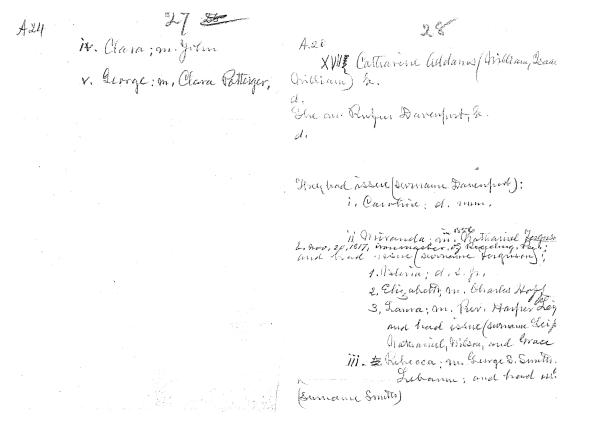 27
A24
iv. Clara; m. John
v. George: m. Clara Potteiger,
28
A.28
XVII Catharine Addams (William, Isaac
William) b.
d.
She m. Rufus Davenport, b.
d.
They had issue (surname Davenport):
i. Caroline; d. unm.
ii Miranda: m. in 1856 Nathaniel Ferguson
b. Nov. 20, 1817, ironmaster of Reading,
and had issue (surname Ferguson):
1. Valeria; d. s. p.
2. Elizabeth; m. Charles Hoff
3. Laura; m. Rev. Harper
and had issue (surname
Nathaniel, Wilson, and Grace
iii. Rebecca; m. George D. Smith.
Lebanon; and had
(surname Smith)